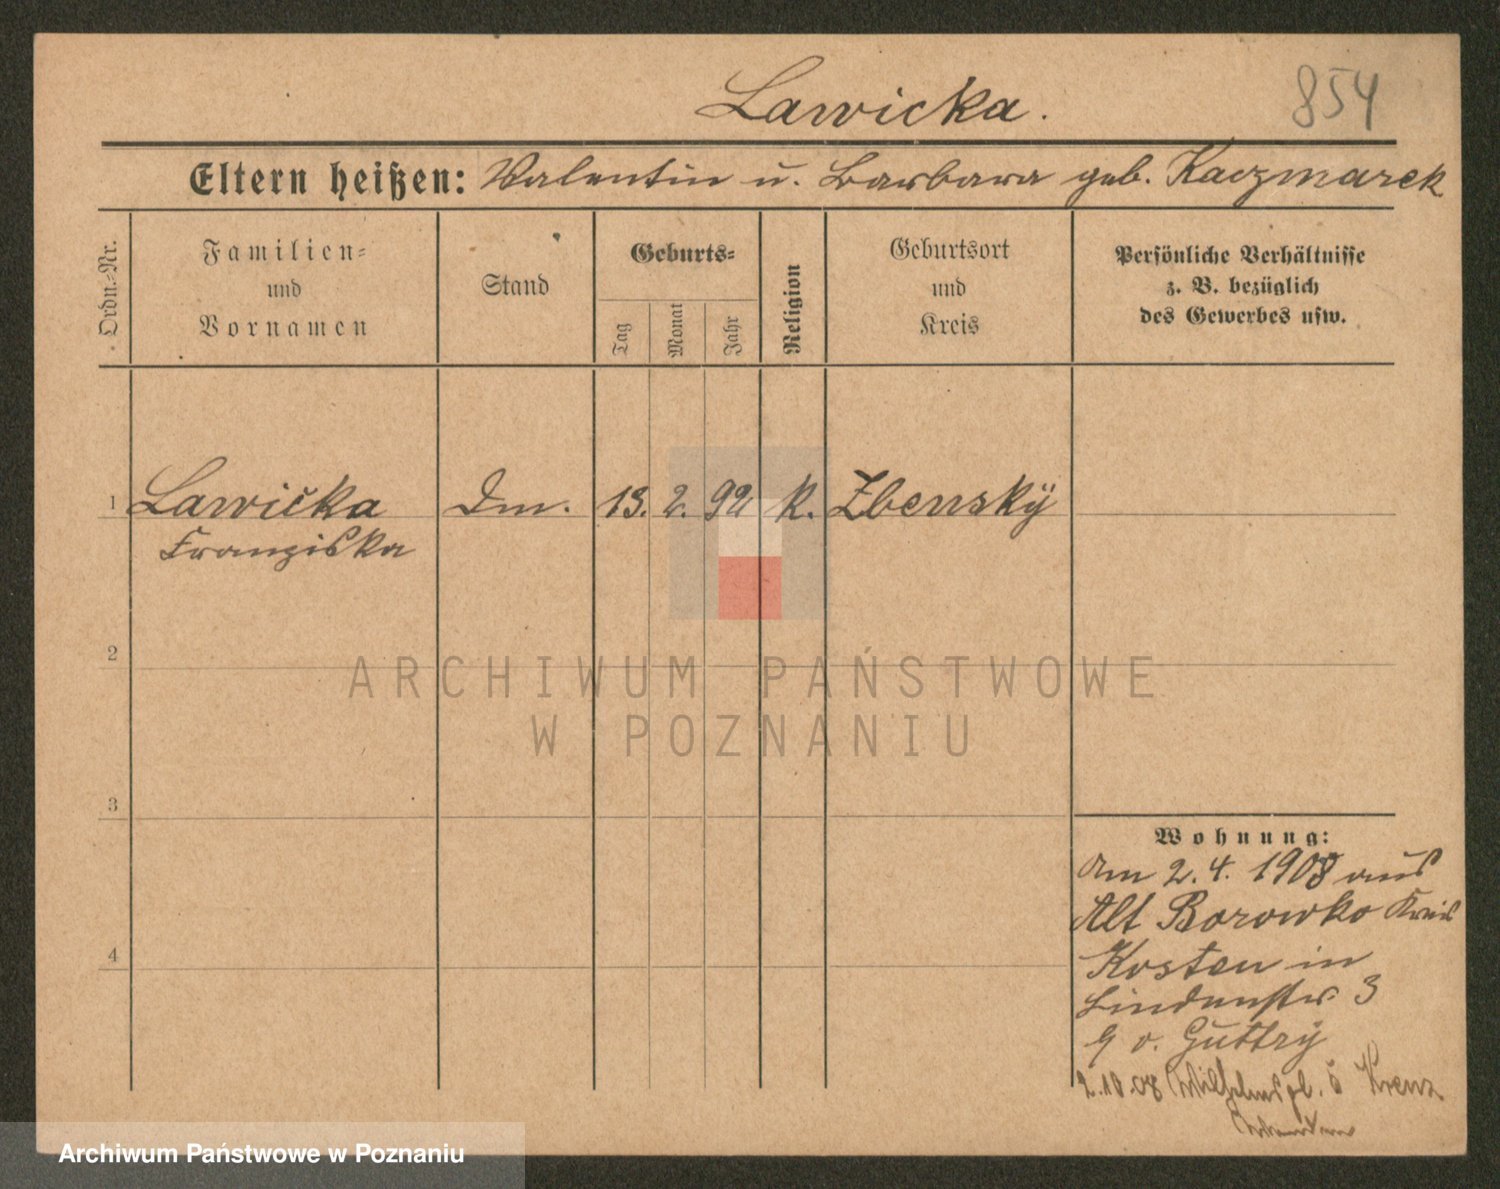 Lawicka.
854
Eltern heißen: Valentin u. Barbara geb. Kaczmarek
Ordn.-Nr.
Familien-
und
Vornamen
Stand
Geburts-
Tag
Monat
Jahr
Religion
Geburtsort
und
Kreis
Persönliche Verhältnisse
z. B. bezüglich
des Gewerbes usw.
1 Lawička Dm. 13. 2. 92 K. Zbensky
Franziska
2
ARCHIWUM PAŃSTWOWE
W POZNANIU
3
Wohnung:
Am 2. 4. 1908 aus
Alt Borowko Kreis
4
Kosten in
Lindenstr 3
v. Guttry
2.10.08 Wilhelmspl. Krenz
Archiwum Państwowe w Poznaniu